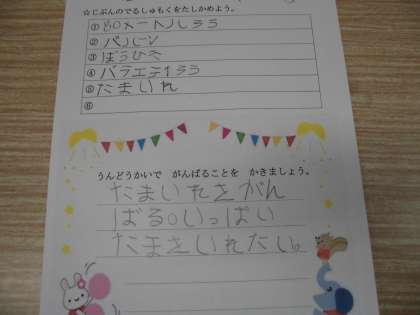 ☆じぶんのでるしゅもくをたしかめよう。
① 80メートルそう
② バルーン
③ ぼうひき
④ バラエティそう
⑤ たまいれ
⑥
うんどうかいで がんばることを かきましょう。
たまいれをがん
ばる。いっぱい
たまをいれたい。